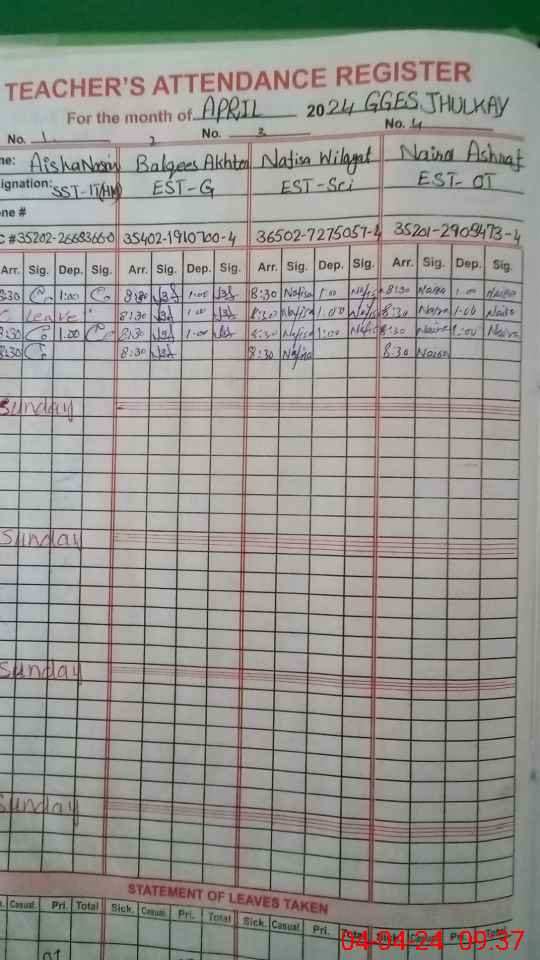 TEACHER'S ATTENDANCE REGISTER
For the month of APRIL 2024 GGES JHULKAY
No. 1 2 No. 3 No. 4
me: Aisha Balqees Akhter Nafisa Wilayat Naira Ashraf
signation: SST-IT(HM) EST-G EST-Sci EST-OT
one #
C # 35202-2668366-0 35402-1910700-4 36502-7275057-4 35201-2909473-4
Arr. Sig. Dep. Sig. Arr. Sig. Dep. Sig. Arr. Sig. Dep. Sig. Arr. Sig. Dep. Sig.
8:30 1:00 8:30 1:00 8:30 Nafisa 1:00 Nafisa 8:30 Naira 1:00 Naira
C Leave 8:30 1:00 8:30 Nafisa 1:00 Nafisa 8:30 Naira 1:00 Naira
8:30 1:00 8:30 1:00 8:30 Nafisa 1:00 Nafisa 8:30 Naira 1:00 Naira
8:30 8:30 8:30 Nafisa 8:30 Naira
Sunday
Sunday
Sunday
Sunday
STATEMENT OF LEAVES TAKEN
Casual Pri. Total Sick. Casual Pri. Total Sick. Casual Pri. Total Sick. Casual Pri. Total
04-04-24 09:37